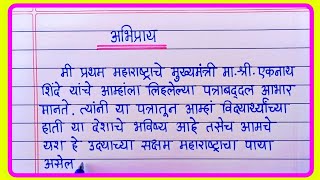 अभिप्राय
मी प्रथम महाराष्ट्राचे मुख्यमंत्री मा. श्री. एकनाथ
शिंदे यांचे आम्हांला लिहलेल्या पत्राबद्दल आभार
मानते. त्यांनी या पत्रातून आम्हां विद्यार्थ्यांच्या
हाती या देशाचे भविष्य आहे तसेच आमचे
यश हे उद्याच्या सक्षम महाराष्ट्राचा पाया
असेल